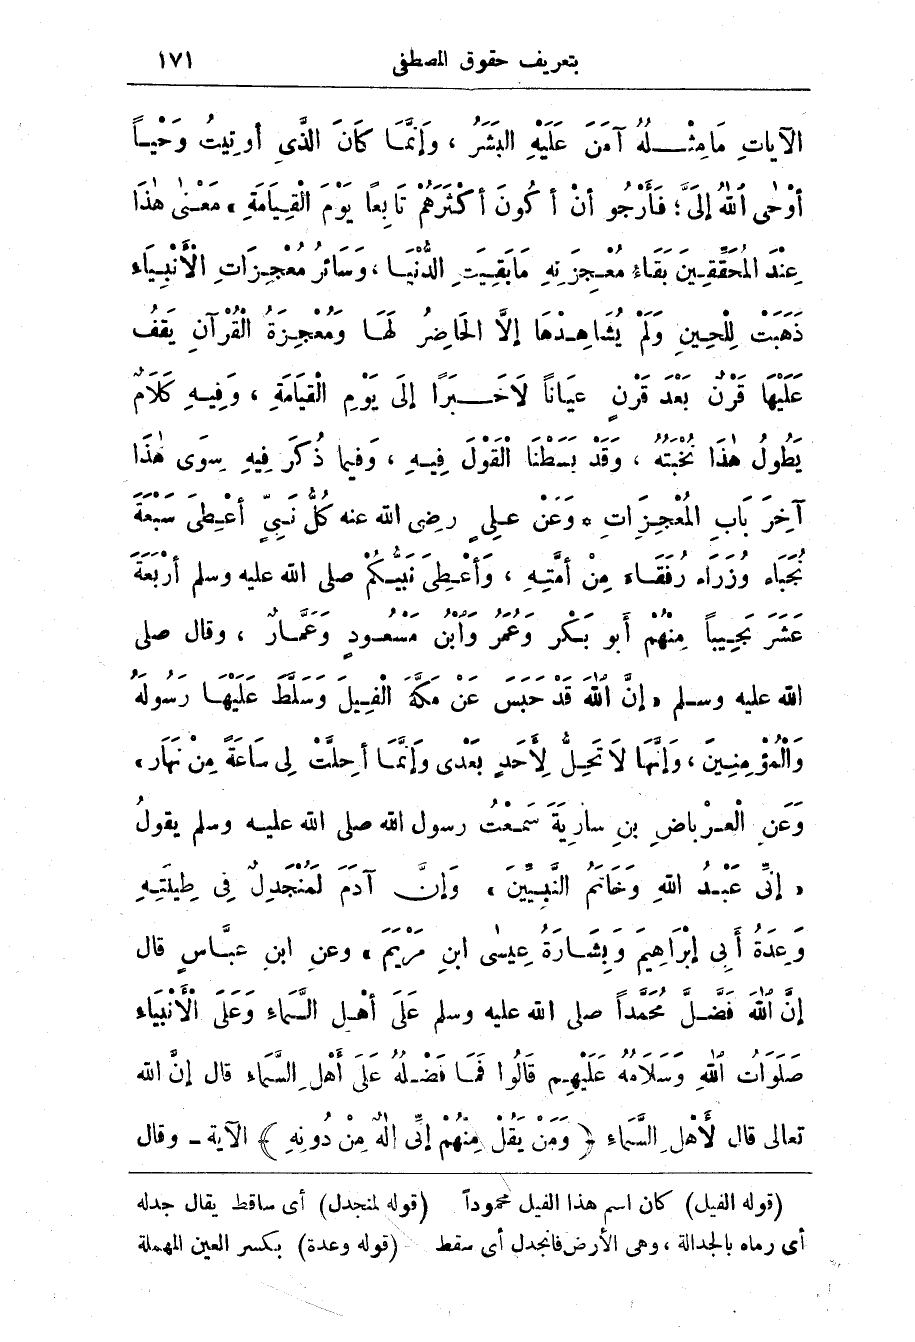 بتعريف حقوق المصطفى ١٧١
الآياتِ مَا مِثْلُهُ آمَنَ عَلَيْهِ البَشَرُ ، وَإِنَّمَا كَانَ الَّذِي أُوتِيتُ وَحْياً
أَوْحَى اللهُ إِلَىَّ ؛ فَأَرْجُو أَنْ أَكُونَ أَكْثَرَهُمْ تَابِعاً يَوْمَ الْقِيَامَةِ » مَعْنَى هٰذَا
عِنْدَ المُحَقِّقِينَ بَقَاءُ مُعْجِزَتِهِ مَابَقِيَتِ الدُّنْيَا ، وَسَائِرُ مُعْجِزَاتِ الْأَنْبِيَاءِ
ذَهَبَتْ لِلْحِينِ وَلَمْ يُشَاهِدْهَا إِلَّا الحَاضِرُ لَهَا وَمُعْجِزَةُ الْقُرْآنِ يَقِفُ
عَلَيْهَا قَرْنٌ بَعْدَ قَرْنٍ عِيَاناً لَا خَبَرًا إِلَى يَوْمِ الْقِيَامَةِ ، وَفِيهِ كَلَامٌ
يَطُولُ هٰذَا نُخْبَتُهُ ، وَقَدْ بَسَطْنَا الْقَوْلَ فِيهِ ، وَفِيمَا ذُكِرَ فِيهِ سِوَى هٰذَا
آخِرَ بَابِ المُعْجِزَاتِ * وَعَنْ عَلِىٍّ رضى الله عنه كُلُّ نَبِىٍّ أُعْطِىَ سَبْعَةَ
نُجَبَاء وُزَرَاء رُفَقَاء مِنْ أُمَّتِهِ ، وَأُعْطِىَ نَبِيُّكُمْ صلى الله عليه وسلم أَرْبَعَةَ
عَشَرَ نَجِيباً مِنْهُمْ أَبو بَكْرٍ وَعُمَرُ وَابْنُ مَسْعُودٍ وَعَمَّارٌ ، وقال صلى
الله عليه وسلم « إِنَّ اللهَ قَدْ حَبَسَ عَنْ مَكَّةَ الْفِيلَ وَسَلَّطَ عَلَيْهَا رَسُولَهُ
وَالْمُؤْمِنِينَ ، وَإِنَّهَا لَا تَحِلُّ لِأَحَدٍ بَعْدِى وَإِنَّمَا أُحِلَّتْ لِى سَاعَةً مِنْ نَهَارٍ »
وَعَنِ الْعِرْبَاضِ بنِ سارِيَةَ سَمِعْتُ رسول الله صلى الله عليه وسلم يقولُ
« إِنِّى عَبْدُ اللهِ وَخَاتَمُ النَّبِيِّينَ ، وَإِنَّ آدَمَ لَمُنْجَدِلٌ فِى طِينَتِهِ
وَعِدَةُ أَبِى إِبْرَاهِيمَ وَبِشَارَةُ عِيسَى ابنِ مَرْيَمَ » وعن ابنِ عبَّاسٍ قال
إِنَّ اللهَ فَضَّلَ مُحَمَّداً صلى الله عليه وسلم عَلَى أَهْلِ السَّمَاءِ وَعَلَى الْأَنْبِيَاءِ
صَلَوَاتُ اللهِ وَسَلَامُهُ عَلَيْهِم قَالُوا فَمَا فَضْلُهُ عَلَى أَهْلِ السَّمَاءِ قال إِنَّ الله
تعالى قال لِأَهْلِ السَّمَاءِ ﴿ وَمَنْ يَقُلْ مِنْهُمْ إِنِّى إِلٰهٌ مِنْ دُونِهِ ﴾ الآية - وقال
(قوله الفيل) كان اسم هذا الفيل محموداً (قوله لمنجدل) أى ساقط يقال جدله
أى رماه بالجدالة ، وهى الأرض فانجدل أى سقط (قوله وعدة) بكسر العين المهملة